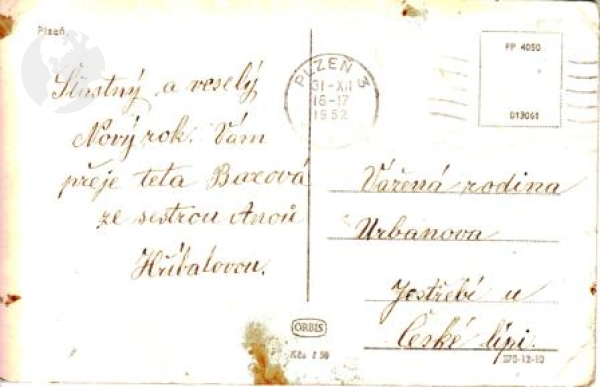 Plzeň
Šťastný a veselý
Nový rok. Vám
přeje teta Baxová
ze sestrou Anou
Hříbalovou.
PLZEŇ 3
31-XII
16-17
1952
FP 4050
013061
Vážená rodina
Urbanova
Jestřebí u
České lípi.
ORBIS
Kčs 1·50